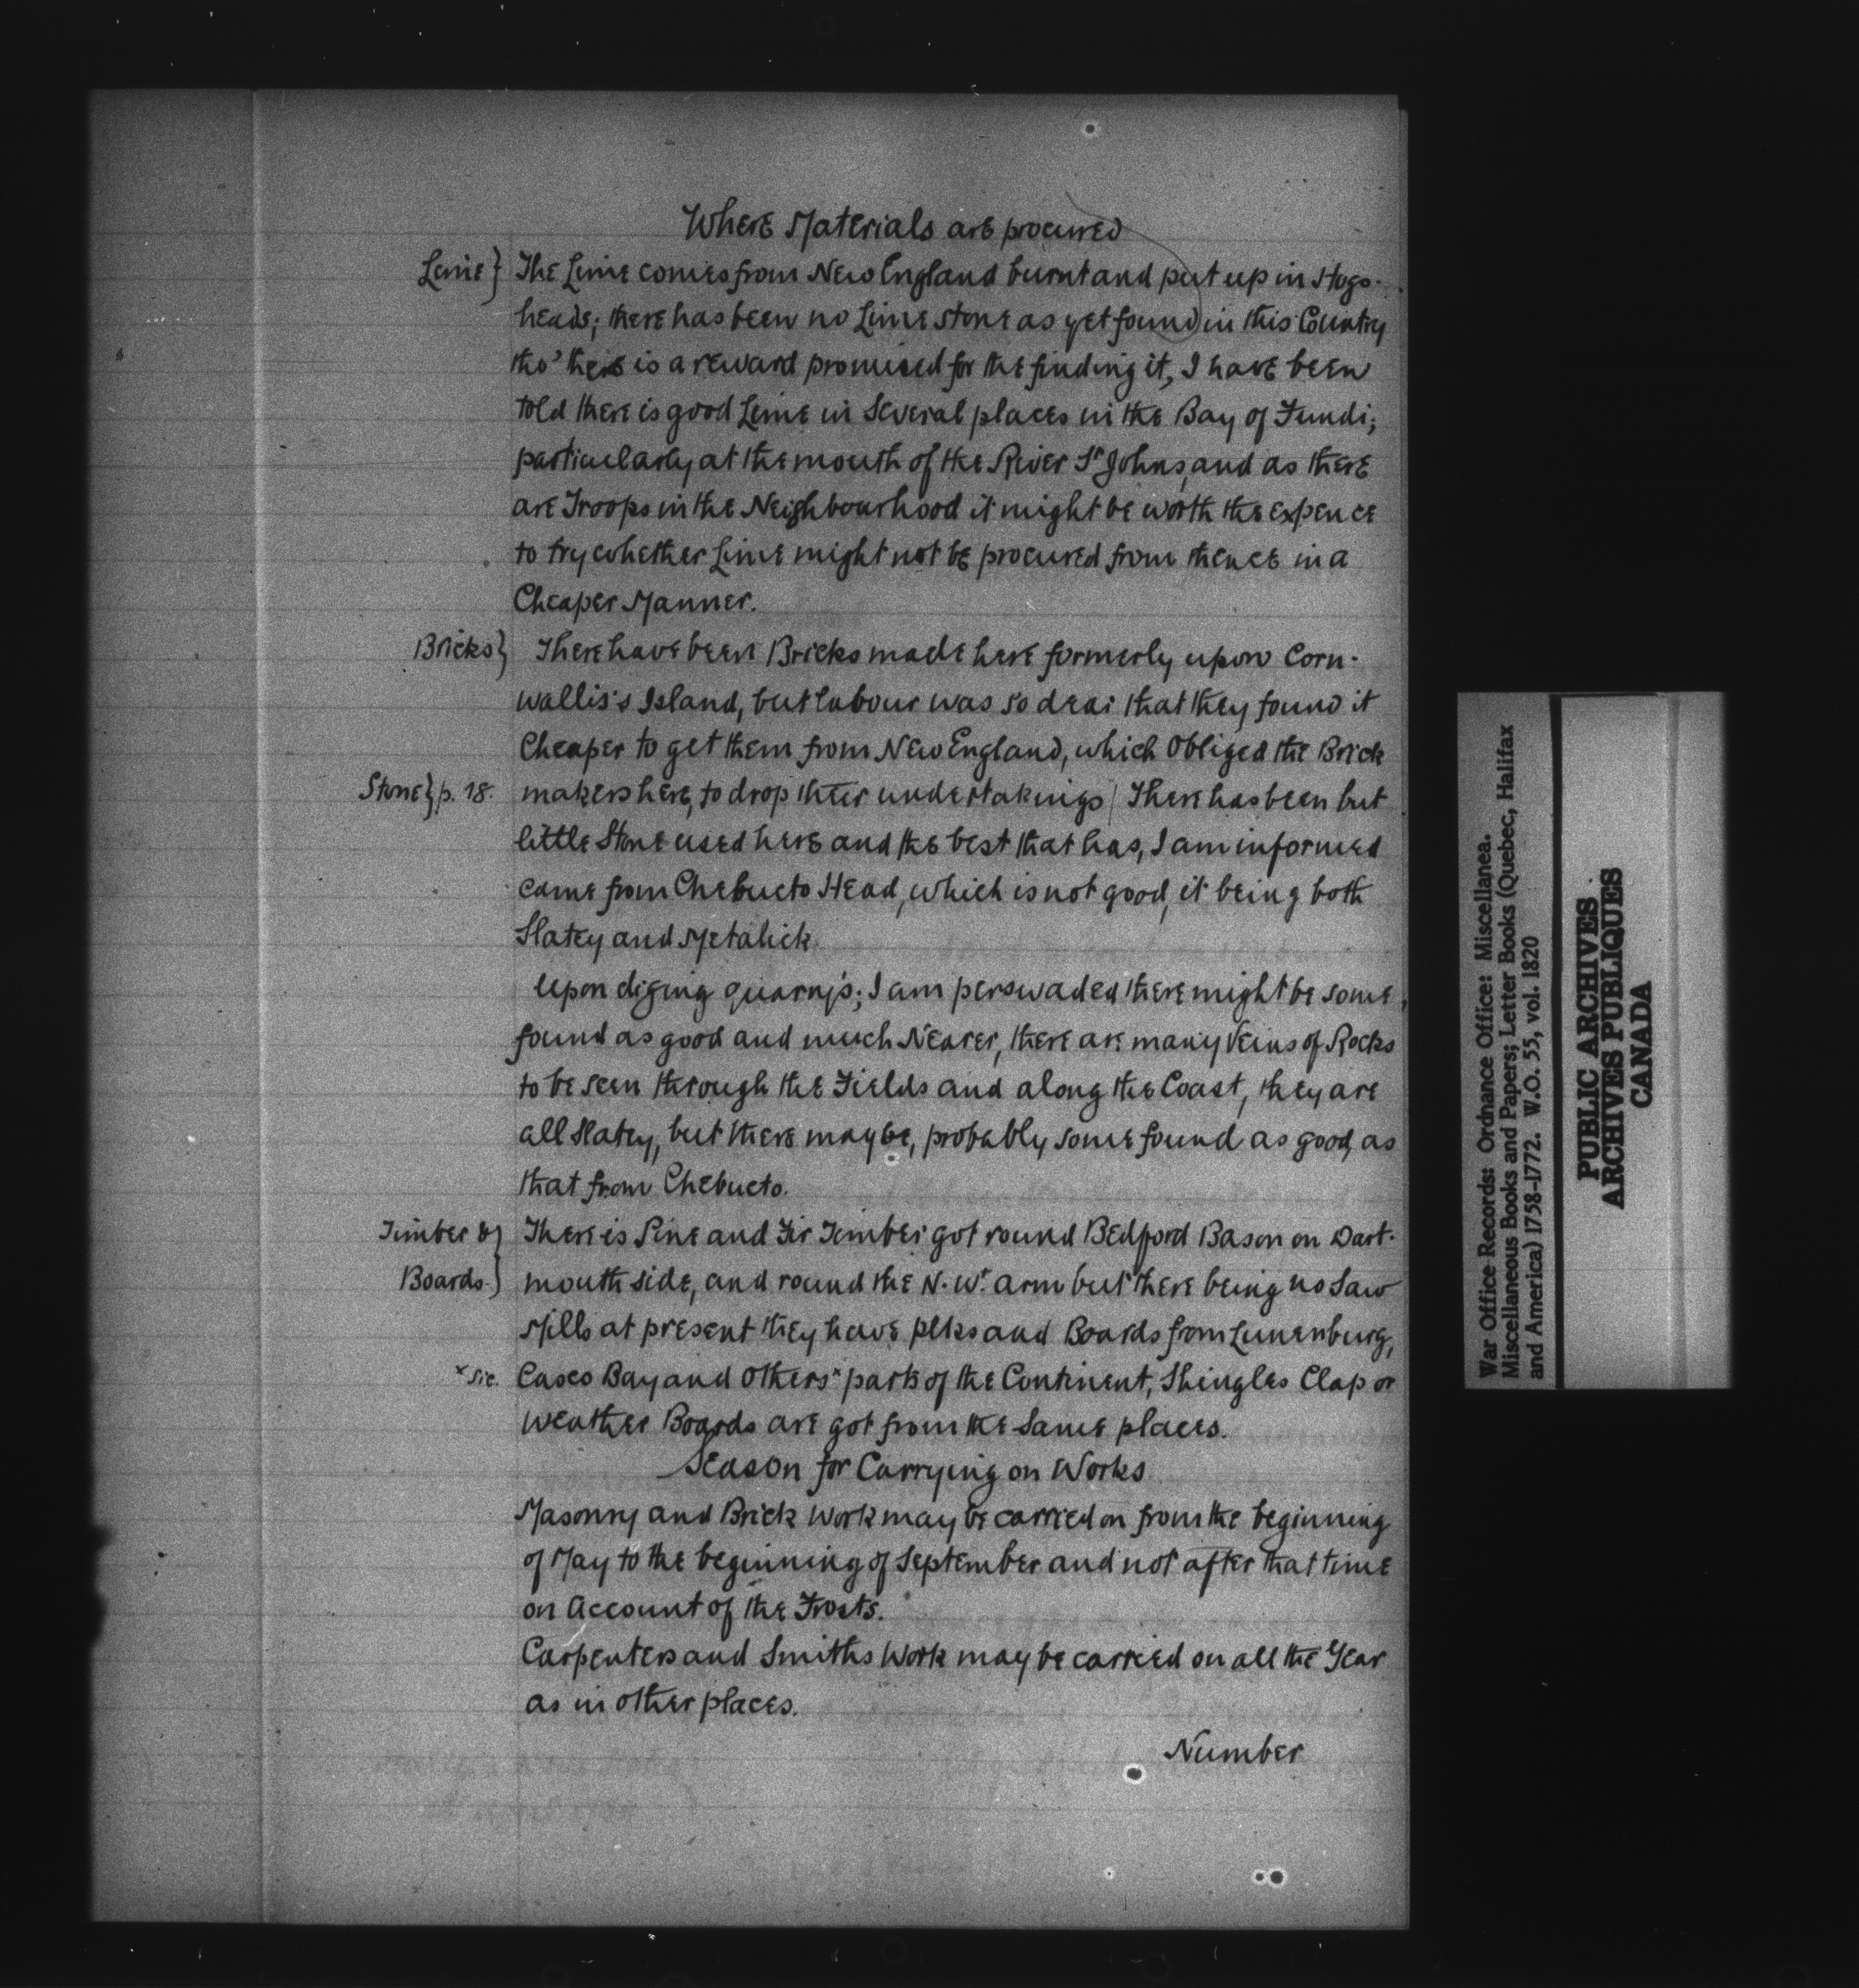 Where Materials are procured
Lime} The Lime comes from New England burnt and put up in Hogs-
heads; there has been no Lime stone as yet found in this Country
tho' there is a reward promised for the finding it, I have been
told there is good Lime in Several places in the Bay of Fundi;
particularly at the mouth of the River St Johns, and as there
are Troops in the Neighbourhood it might be worth the expence
to try whether Lime might not be procured from thence in a
Cheaper Manner.
Bricks} There have been Bricks made here formerly upon Corn-
wallis's Island, but labour was so dear that they found it
Cheaper to get them from New England, which Obliged the Brick
Stone} p. 18. makers here, to drop their undertakings / There has been but
little Stone used here and the best that has, I am informed
came from Chebucto Head, which is not good, it being both
Slatey and Metalick.
Upon diging quarrys; I am perswaded there might be some,
found as good and much Nearer, there are many Veins of Rocks
to be seen through the Fields and along the Coast, they are
all Slatey, but there may be, probably some found as good, as
that from Chebucto.
Timber &} There is Pine and Fir Timber got round Bedford Bason on Dart-
Boards.} mouth side, and round the N. Wt. arm but there being no Saw
Mills at present they have plks and Boards from Lunenburg,
x Sic. Casco Bay and Others x parts of the Continent, Shingles Clap or
Weather Boards are got from the Same places.
Season for Carrying on Works
Masonry and Brick Work may be carried on from the beginning
of May to the beginning of September and not after that time
on Account of the Frosts.
Carpenters and Smiths Work may be carried on all the Year
as in other places.
Number
War Office Records: Ordnance Office: Miscellanea.
Miscellaneous Books and Papers; Letter Books (Quebec, Halifax
and America) 1758-1772. W.O. 55, vol. 1820
PUBLIC ARCHIVES
ARCHIVES PUBLIQUES
CANADA